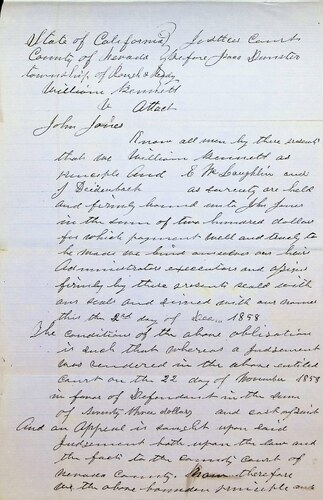 State of California Justice Court
County of Nevada before Jesse Dunster
township of Rough & Ready
William Bennett
v Attach
John Jones
Know all men by these presents
that we William Bennett as
principle and E McLaughlin and
J Deidenbach as surety are held
and firmly bound unto John Jones
in the sum of two hundred dollars
for which payment well and truly to
be made we bind ourselves our heirs
Administrators executors and
firmly by these presents seald with
our seals and sined with our names
this the 2d day of Dec 1858
The condition of the above obligation
is such that whereas a judgement
was rendered in the above entitled
Court on the 22 day of November 1858
in favor of Defendant in the sum
of Seventy three dollars and cost of suit
And an Appeal is saught upon said
Judgement both upon the law and
the facts to the county court of
Nevada County. therefore
we the above bounden principle and